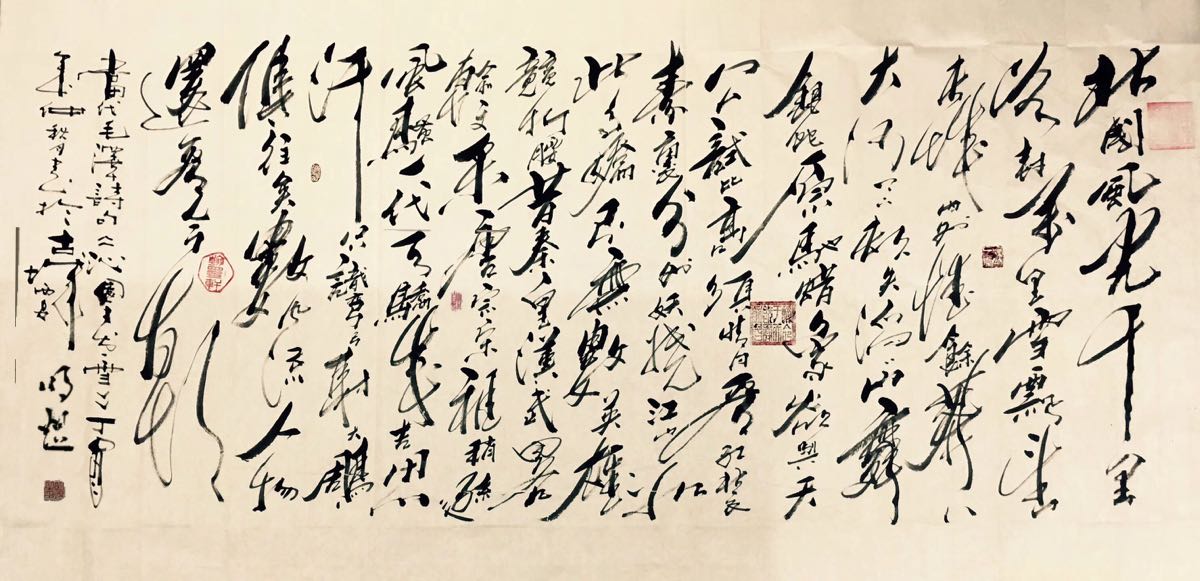 北國風光千里
冰封萬里雪飄望
長城内外惟餘莽〻
大河上下頓失滔〻山舞
銀蛇原馳蠟象欲與天
公試比高須晴日看紅裝
素裹分外妖嬈江山如
此多嬌引無數英雄
競折腰昔秦皇漢武略
輸文采唐宗宋祖稍遜
風騷一代天驕成吉思
汗只識彎弓射大鵰
俱往矣數風流人物
還看今朝
當代毛澤詩句沁園春雪丁酉
年仲秋月書於古